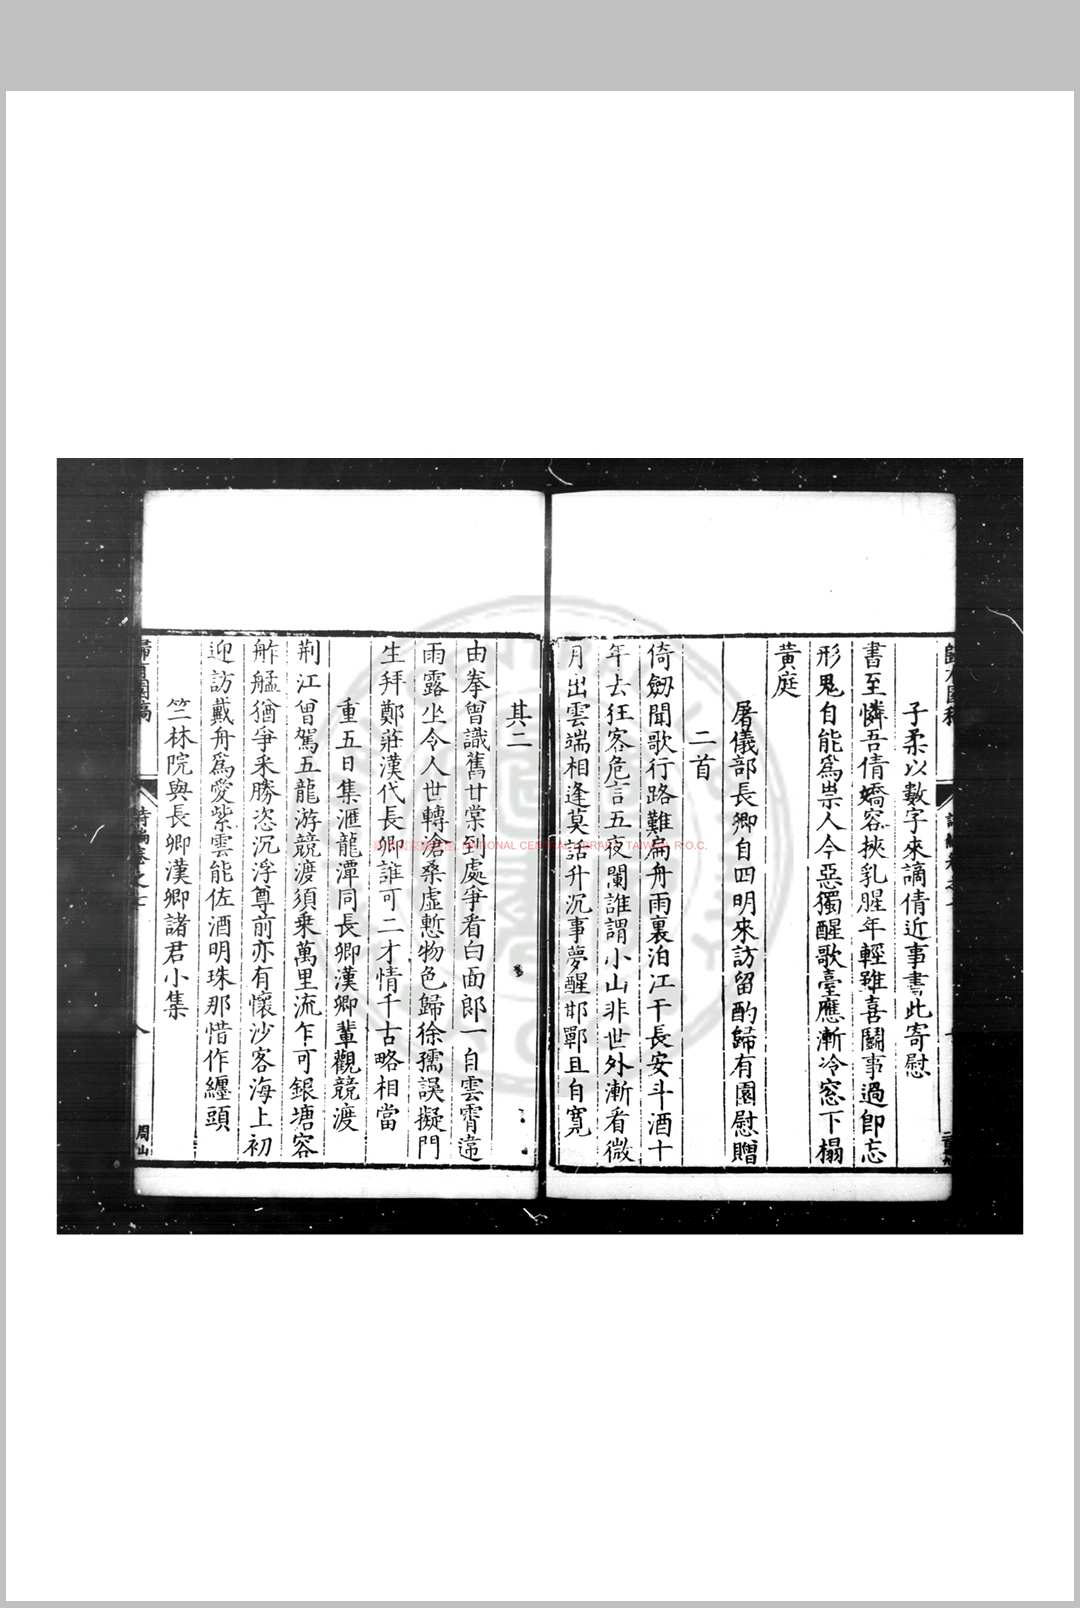 子柔以數字來謫倩近事書此寄慰
書至憐吾倩嬌容挾乳腥年輕雖喜鬪事過卽忘
形鬼自能爲祟人今惡獨醒歌臺應漸冷窓下榻
黃庭
屠儀部長卿自四明來訪留酌歸有園慰贈
二首
倚劒聞歌行路難扁舟雨裏泊江干長安斗酒十
年去狂客危言五夜闌誰謂小山非世外漸看微
月出雲端相逢莫話升沉事夢醒邯鄲且自寬
其二
由拳曾識舊甘棠到處爭看白面郎一自雲霄違
雨露坐令人世轉滄桑虛慙物色歸徐孺誤擬門
生拜鄭莊漢代長卿誰可二才情千古略相當
重五日集滙龍潭同長卿漢卿輩觀競渡
荆江曾駕五龍游競渡須乘萬里流乍可銀塘容
舴艋猶爭采勝恣沉浮尊前亦有懷沙客海上初
迎訪戴舟爲愛紫雲能佐酒明珠那惜作纏頭
竺林院與長卿漢卿諸君小集
歸有園稿
詩編卷之七
八
周山
NATIONAL CENTRAL LIBRARY, TAIWAN, R.O.C.